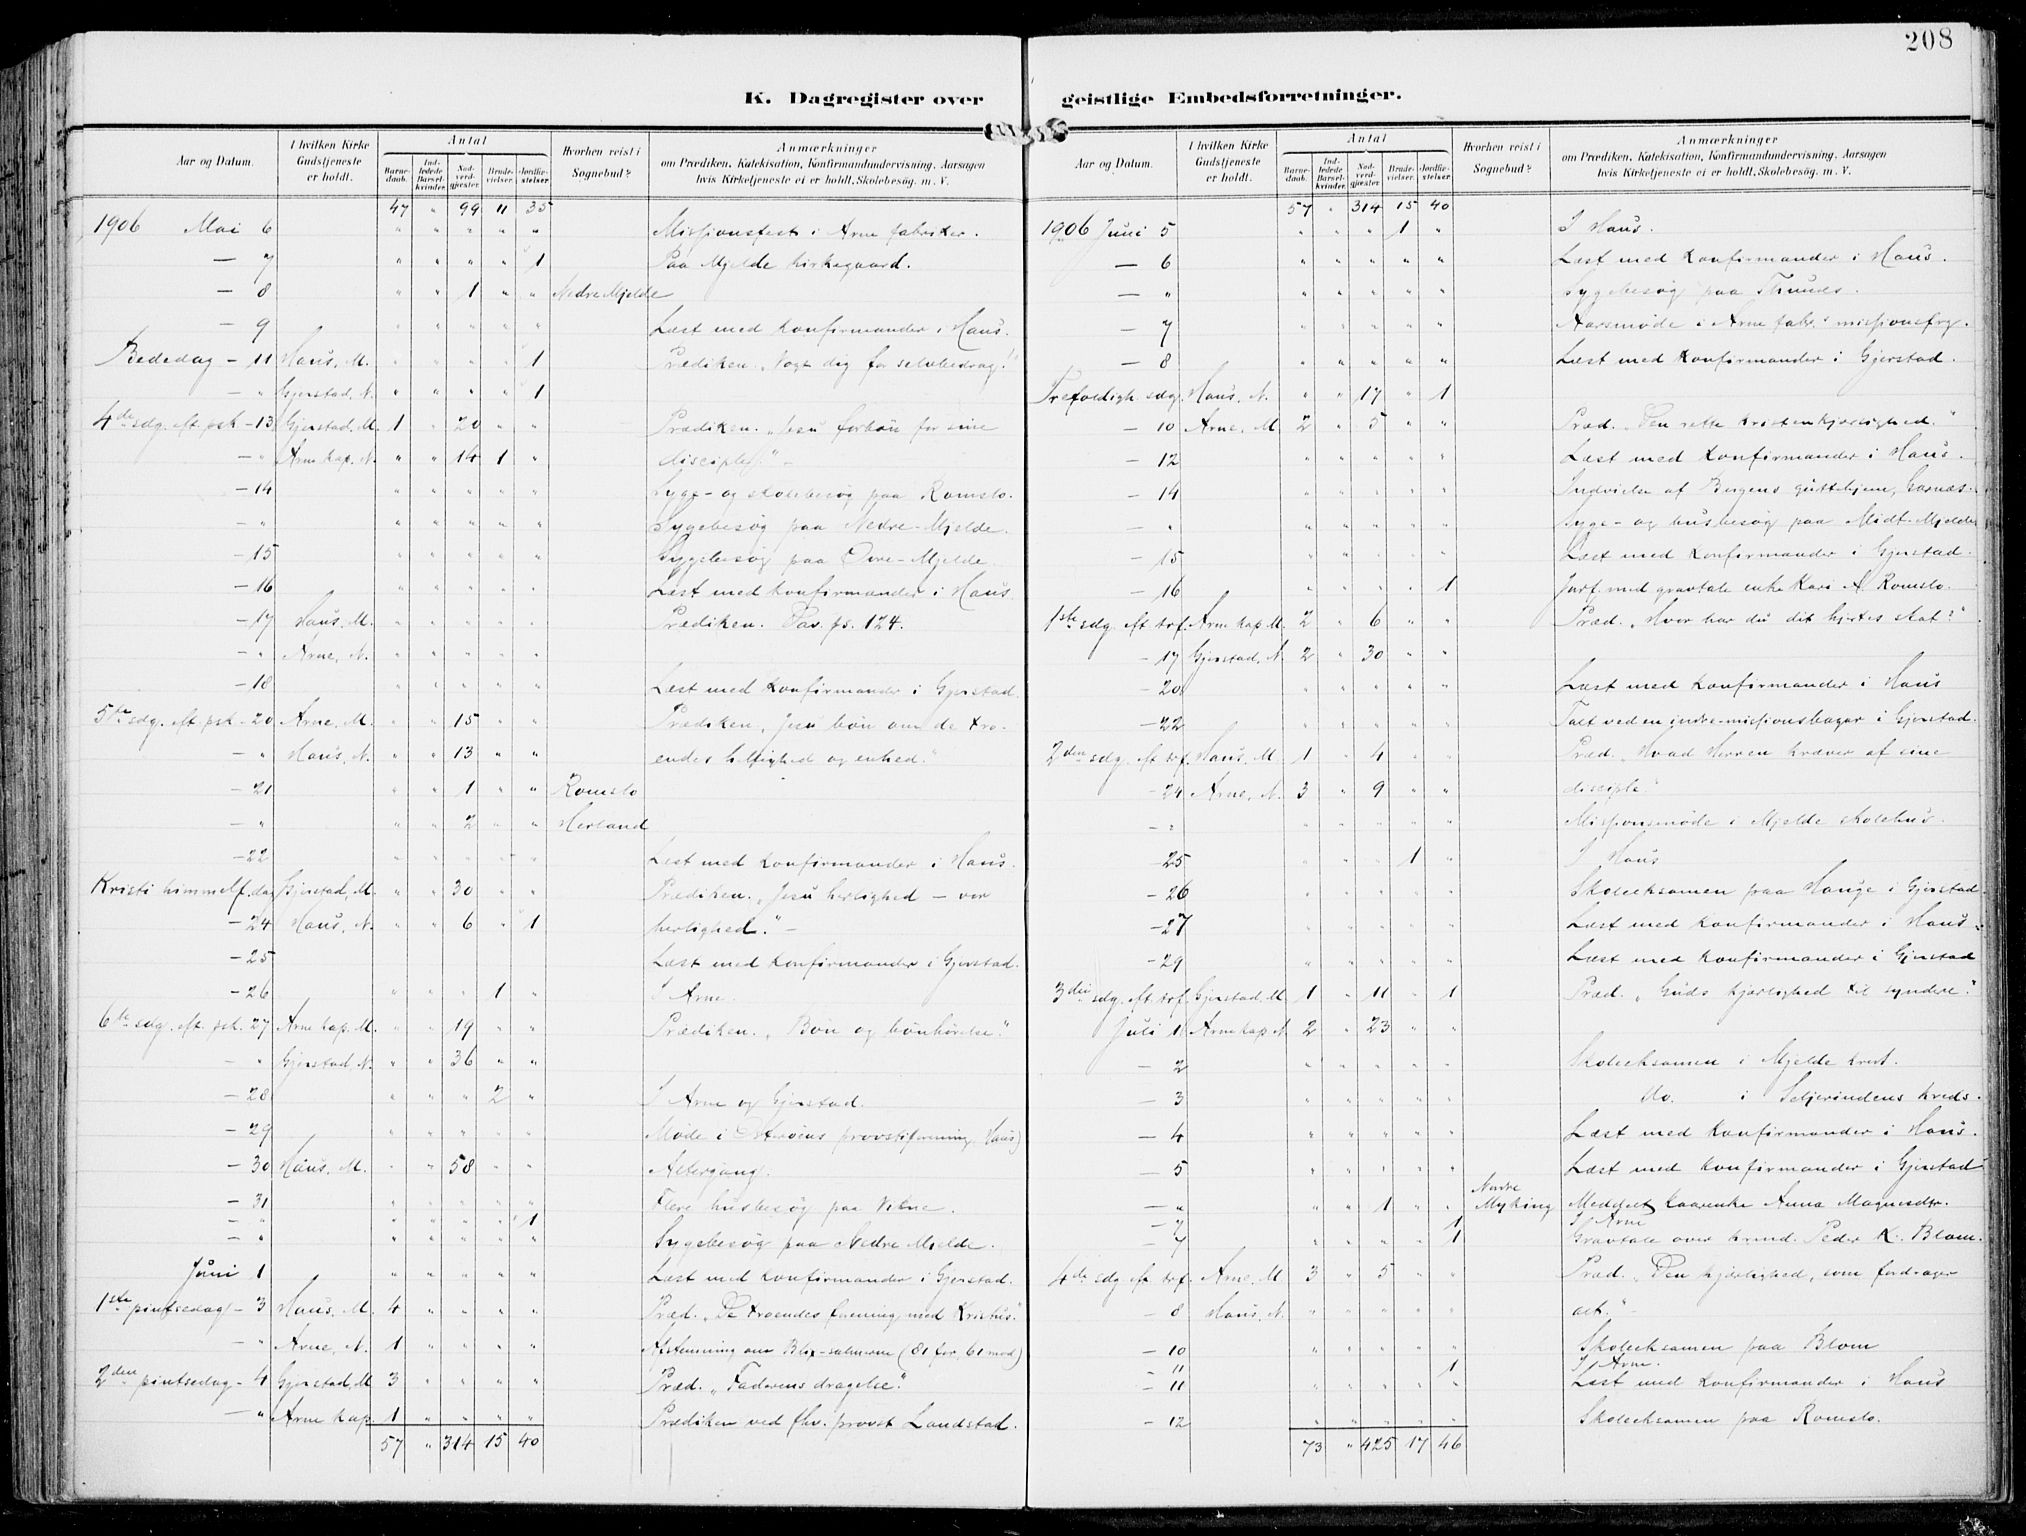 208
K. Dagregister over geistlige Embedsforretninger.
Aar og Datum. I hvilken Kirke Gudstjeneste er holdt. Antal Barnedaab. Indledede Barselkvinder. Nadverdgjester. Brudevielser. Jordfæstelser. Hvorhen reist i Sognebud? Anmærkninger om Prædiken, Katekisation, Konfirmandundervisning, Aarsagen hvis Kirketjeneste ei er holdt, Skolebesøg, m. V.
47 " 99 11 35
1906 Mai 6 " " " " " Missionsfest i Arne fabriker.
— 7 " " " " 1 Paa Mjelde kirkegaard.
— 8 " " 1 " " Nedre Mjelde
— 9 " " " " " Læst med konfirmander i Haus.
Bededag — 11 Haus, M. " " " " 1 Prædiken. "Vogt dig for selvbedrag!"
— " Gjerstad, N. " " " " 1
4de sdg. eft. psk — 13 Gjerstad, M. 1 " 20 " " Prædiken. "Jesu forbøn for sine
— " Arne kap. N. " " 14 1 " disciple." —
— 14 " " " " " Syge- og skolebesøg paa Romslo.
— " " " " " " Sygebesøg paa Nedre-Mjelde.
— 15 " " " " " Sygebesøg paa Øvre-Mjelde.
— 16 " " " " " Læst med konfirmander i Haus
— 17 Haus, M. " " " " " Prædiken. Dav. ps. 124.
— " Arne, N. " " " " "
— 18 " " " " " Læst med konfirmander i Gjerstad.
5te sdg. eft. psk — 20 Arne, M. " " 15 " " Prædiken. "Jesu bøn om de tro-
— " Haus, N. " " 13 " " endes hellighed og enhed."
— 21 " " 1 " " Romslo
— " " " 2 " " Herland
— 22 " " " " " Læst med konfirmander i Haus.
Kristi himmelf. dag Gjerstad, M. " " 30 " " Prædiken. "Jesu herlighed — vor
— 24 Haus, N. " " 6 " 1 herlighed." —
— 25 Læst med konfirmander i Gjerstad.
— 26 " " " 1 " I Arne.
6te sdg. eft. psk. 27 Arne kap. M. " " 19 " " Prædiken. "Bøn og bønhørelse."
— " Gjerstad, N. " " 36 " "
— 28 " " " 2 " I Arne og Gjerstad.
— 29 " " " " " Møde i Osterøens provstiforening (Haus)
— 30 Haus, M. " " 58 " " Altergang.
— 31 " " " " " Flere husbesøg paa Votne.
— " " " " " 1
— " " " " " " Sygebesøg paa Nedre Mjelde.
Juni 1 " " " " " Læst med konfirmander i Gjerstad.
1ste pintsedag — 3 Haus, M. 4 " " " " Præd. "De troendes forening med Kristus."
— " Arne, N. 1 " " " " Afstemning om Blix-salmerne (81 for, 61 mod)
2den pintsedag — 4 Gjerstad, M 3 " " " " Præd. "Faderens dragelse."
— " Arne kap. 1 " " " " Prædiken ved fhv. provst Landstad.
57 " 314 15 40
Aar og Datum. I hvilken Kirke Gudstjeneste er holdt. Antal Barnedaab. Indledede Barselkvinder. Nadverdgjester. Brudevielser. Jordfæstelser. Hvorhen reist i Sognebud? Anmærkninger om Prædiken, Katekisation, Konfirmandundervisning, Aarsagen hvis Kirketjeneste ei er holdt, Skolebesøg, m. V.
57 " 314 15 40
1906 Juni 5 " " " 1 " I Haus.
— 6 " " " " " Læst med konfirmander i Haus.
— " " " " " " Sygebesøg paa Thunes.
— 7 " " " " " Aarsmøde i Arne fabr. missionsfrg.
— 8 " " " " " Læst med konfirmander i Gjerstad.
Trefoldigh. sdg. Haus, N. " " 17 " 1
— 10 Arne, M 2 " 5 " " Præd. "Den rette kristenkjærlighed."
— 12 " " " " " Læst med konfirmander i Haus.
— 14 " " " " " Indvielse af Bergens guttehjem, Garnæs.
— " " " " " " Syge- og husbesøg paa Midt-Mjelde
— 15 " " " " " Læst med konfirmander i Gjerstad.
— 16 " " " " 1 Jorf. med gravtale enke Kari A. Romslo.
1ste sdg. eft. trf. Arne kap M. 2 " 6 " " Præd. "Hvor har du dit hjertes skat?"
— 17 Gjerstad, N. 2 " 30 " "
— 20 " " " " " Læst med konfirmander i Haus
— 22 " " " " " Talt ved en indre-missionsbazar i Gjerstad.
2den sdg. eft. trf. Haus, M. 1 " 4 " " Præd. "Hvad Herren kræver af sine
— 24 Arne, N. 3 " 9 " " disciple."
— " " " " " " Missionsmøde i Mjelde skolehus.
— 25 " " " 1 " I Haus
— 26 " " " " " Skoleeksamen paa Hauge i Gjerstad
— 27 " " " " " Læst med konfirmander i Haus.
— 29 " " " " " Læst med konfirmander i Gjerstad
3die sdg. eft. trf. Gjerstad, M. 1 " 11 " 1 Præd. "Guds kjærlighed til syndere."
Juli 1 Arne kap N. 2 " 23 " "
— 2 " " " " " Skoleeksamen i Mjelde kreds.
— 3 " " " " " do. i Seljerindens kreds.
— 4 " " " " " Læst med konfirmander i Haus.
— 5 " " " " " Læst med konfirmander i Gjerstad
— " " " 1 " " Nordre Myking Meddelt kaarenke Anna Magnesdtr.
— 7 1 I Arne
— 7 " " " " 1 Gravtale over krmd. Peder K. Blom.
4de sdg. eft. trf. Arne, M 3 " 5 " " Præd. "Den kjærlighed, som fordrager
— 8 Haus, N. " " " " " alt." —
— 10 " " " " " Skoleeksamen paa Blom
— 11 1 I Arne.
— 11 " " " " " Læst med konfirmander i Haus
— 12 " " " " " Skoleeksamen paa Romslo.
73 " 425 17 46